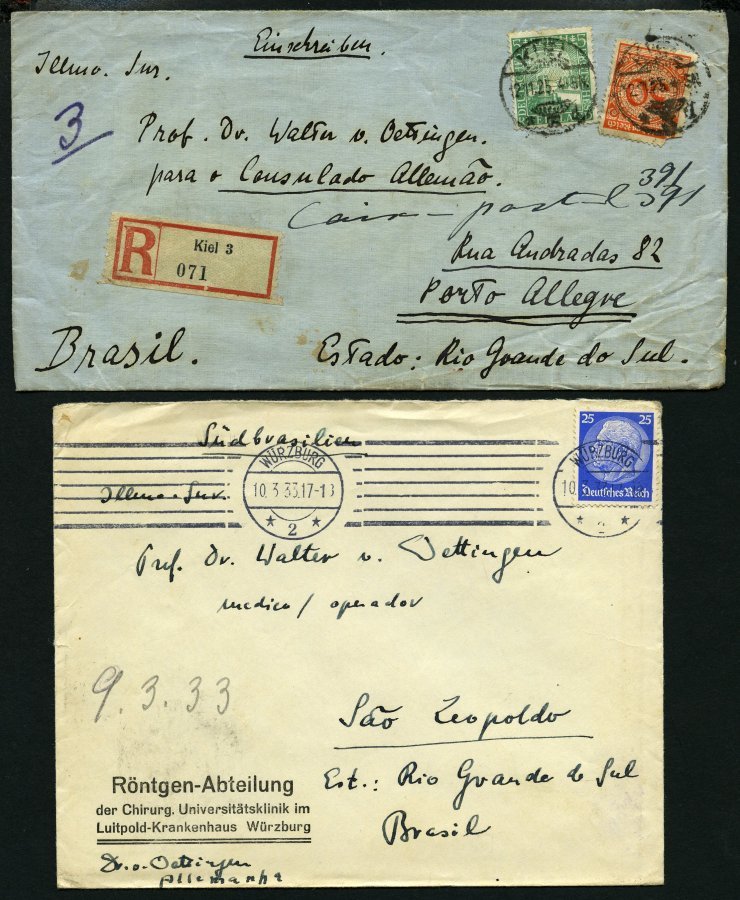 Einschreiben.
Illmo. Snr.
3
Prof. Dr. Walter v. Oettingen.
para o Consulado Allemão.
391
Caixa postal 391
R Kiel 3
071
Rua Andradas 82
Porto Allegre
Brasil. Estado: Rio Grande do Sul.
KIEL
50
Südbrasilien
WÜRZBURG
10.3.33.17-18
2
25 25
Deutsches Reich
WÜRZBURG
10
2
Illmo. Snr.
Prof. Dr. Walter v. Oettingen
medico / operador
9.3.33
São Leopoldo
Est.: Rio Grande do Sul
Brasil
Röntgen-Abteilung
der Chirurg. Universitätsklinik im
Luitpold-Krankenhaus Würzburg
Dr. v. Oettingen
Allemanha